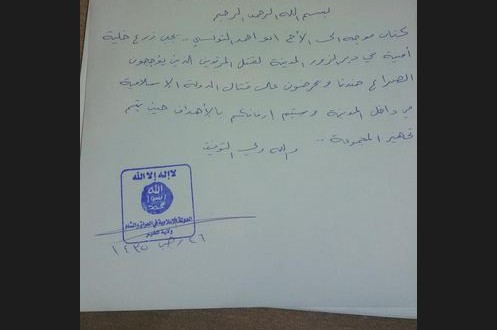 بسم الله الرحمن الرحيم
كتاب موجه الى الأخ ابو احمد التونسي .. يجب زرع خلية
أمنية في دير الزور المدينة لقتل المرتدين الذين يؤججون
الصراع ضدنا ويحرضون على قتال الدولة الاسلامية
في داخل المدينة وسيتم ارفاقكم بالأهداف حين يتم
تجهيز المجموعة ..
والله ولي التوفيق
لا إله إلا الله
الله
رسول
محمد
الدولة الإسلامية في العراق والشام
ولاية
٢٦ / رجب / ١٤٣٥